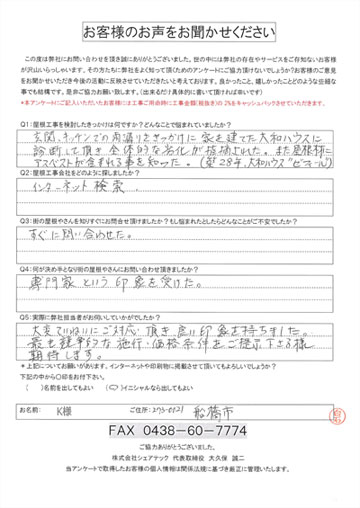 お客様のお声をお聞かせください
この度は弊社にお問い合わせを頂き誠にありがとうございます。世の中には弊社の存在やサービスをご存知ないお客様
が沢山いらっしゃいます。その方たちに弊社をよく知って頂くためのアンケートにご協力頂けないでしょうか?お客様のご意見
をお聞かせいただき今後の活動に反映させていただきたいと考えております。良かったこと、嬉しかったことどのような些細な
事でも結構です。是非ご協力お願い致します。(出来るだけ具体的に書いて頂けますと幸いです)
*本アンケートにご記入いただいたお客様には工事ご用命時に工事金額(税抜き)の2%をキャッシュバックさせていただきます。
Q1:屋根工事を検討したきっかけは何ですか?どんなことで悩んでいましたか?
玄関、キッチンでの雨漏りをきっかけに家を建てた大和ハウスに
診断して頂き全体的な劣化が指摘された。また屋根材に
アスベストが含まれる事を知った。(築28年、大和ハウス
Q2:屋根工事会社をどのように探しましたか?
インターネット検索
Q3:街の屋根やさんを知りすぐにお問合せ頂けましたか?もし悩まれたとしたらどんなことがご不安でしたか?
すぐに問い合わせた。
Q4:何が決め手となり街の屋根やさんにお問い合わせ頂きましたか?
専門家という印象を受けた。
Q5:実際に弊社担当者がお伺いしていかがでしたか?
大変ていねいにご対応頂き、良い印象を持ちました。
最も競争的な施行・価格条件をご提示下さる様
期待します。
*上記についてお願いがあります。インターネットや印刷物に掲載させて頂いてもよろしいでしょうか?
下記の中から○印をお付下さい。
( )名前を出してもよい (○)イニシャルなら出してもよい
お名前: K様 ご住所:273-0121 船橋市
FAX 0438-60-7774
ご協力ありがとうございました。
株式会社シェアテック 代表取締役 大久保 誠二
当アンケートで取得したお客様の個人情報は関係法規に基づき厳正に管理いたします。